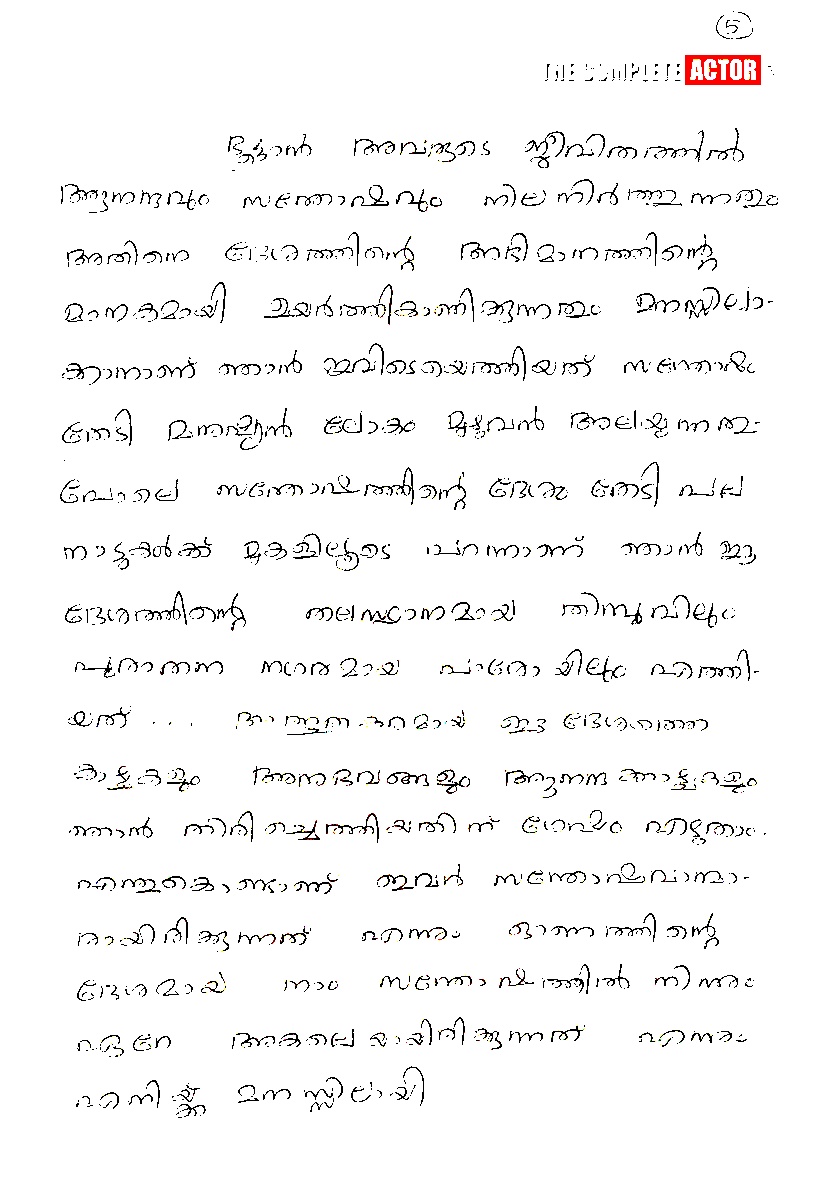 5
THE COMPLETE ACTOR
ഭൂട്ടാൻ അവരുടെ ജീവിതത്തിൽ
ആനന്ദവും സന്തോഷവും നിലനിർത്തുന്നതും
അതിനെ ദേശത്തിന്റെ അഭിമാനത്തിന്റെ
മാനകമായി ഉയർത്തികാണിക്കുന്നതും മനസ്സിലാ-
ക്കാനാണ് ഞാൻ ഇവിടെയെത്തിയത് സന്തോഷം
തേടി മനുഷ്യൻ ലോകം മുഴുവൻ അലയുന്നതു-
പോലെ സന്തോഷത്തിന്റെ ദേശം തേടി പല
നാടുകൾക്ക് മുകളിലൂടെ പറന്നാണ് ഞാൻ ഈ
ദേശത്തിന്റെ തലസ്ഥാനമായ തിമ്പുവിലും
പുരാതന നഗരമായ പാരോയിലും എത്തി-
യത് ... ഈ ദേശത്തെ
കാഴ്ചകളും അനുഭവങ്ങളും ആനന്ദക്കാഴ്ചകളും
ഞാൻ തിരിച്ചെത്തിയതിന് ശേഷം എഴുതാം.
എന്തുകൊണ്ടാണ് ഇവർ സന്തോഷവാന്മാ-
രായിരിക്കുന്നത് എന്നും ഓണത്തിന്റെ
ദേശമായ നാം സന്തോഷത്തിൽ നിന്നും
ഏറെ അകലെയായിരിക്കുന്നത് എന്നും
എനിയ്ക്കു മനസ്സിലായി